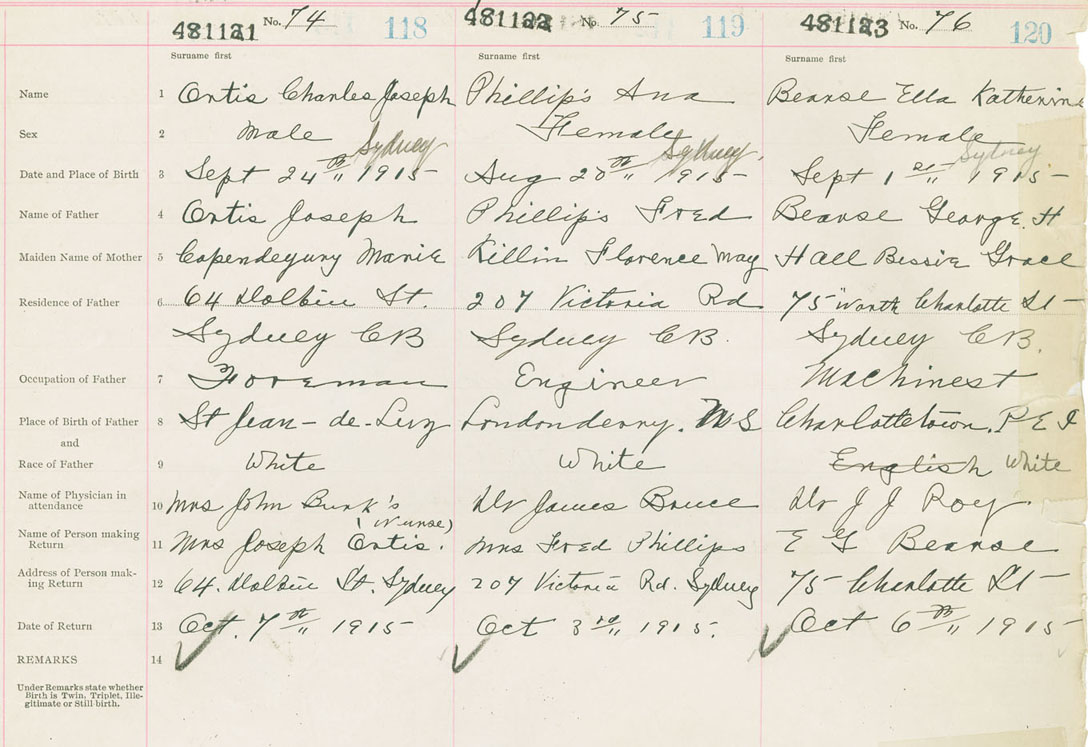 481121 No. 74 118 481122 No. 75 119 481123 No. 76 120
Surname first Surname first Surname first
Name 1 Ortis Charles Joseph Phillips Ana Bearse Ella Katherine
Sex 2 Male Female Female
Sydney Sydney Sydney
Date and Place of Birth 3 Sept 24th 1915 Aug 20th 1915 Sept 1st 1915
Name of Father 4 Ortis Joseph Phillips Fred Bearse George. H
Maiden Name of Mother 5 Marie Killin Florence May Hall Bessie Grace
Residence of Father 6 64 Dolbin St. 207 Victoria Rd 75 North Charlotte St
Sydney CB Sydney CB. Sydney CB.
Occupation of Father 7 Foreman Engineer Machinest
Place of Birth of Father 8 St Jean-de-Luz Londonderry. NS Charlottetown. P E I
and
Race of Father 9 White White English White
Name of Physician in
attendance 10 Mrs John Burk's Dr James Bruce Dr J J Roy
(Nurse)
Name of Person making
Return 11 Mrs Joseph Ortis. Mrs Fred Phillips E G Bearse
Address of Person mak-
ing Return 12 64. Dolbin St. Sydney 207 Victoria Rd. Sydney 75 Charlotte St
Date of Return 13 Oct. 7th 1915 Oct 3rd 1915. Oct 6th 1915
REMARKS 14
Under Remarks state whether
Birth is Twin, Triplet, Ille-
gitimate or Still-birth.